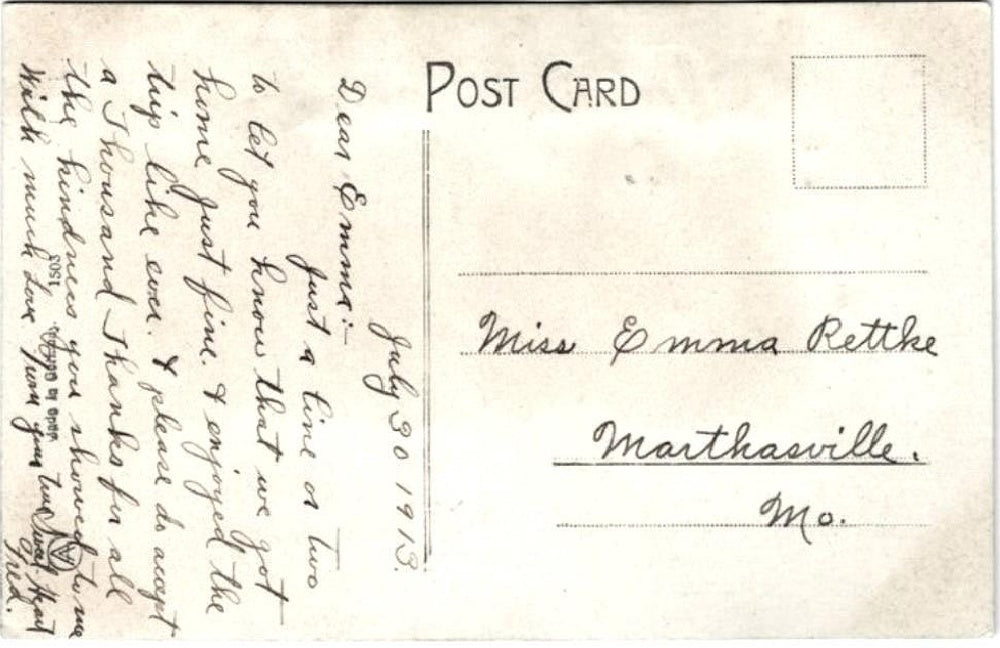 POST CARD
July 30 1913.
Dear Emma:—
Just a line or two
to let you know that we got
home just fine. & enjoyed the
trip like ever. & please do accept
a Thousand Thanks for all
the kindness you showed to me
With much Love from your true Sweet Heart
Fred.
Miss Emma Rettke
Marthasville.
Mo.
Made in
1503